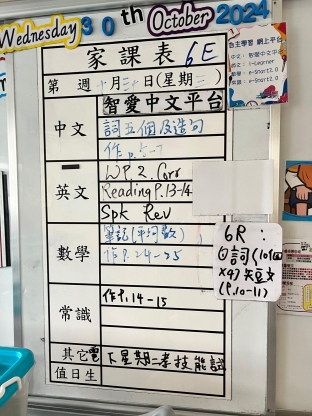 Wednesday 30th October 2024
家課表 6E
第 週 十月三十日(星期三)
自主學習 網上平台
中文:智愛中文平台
英文:i-Learner
數學:e-Smart2.0
常識:e-Smart2.0
智愛中文平台
中文 詞五個及造句
作p.6-7
英文 WP 2. Corr
Reading P.13-14
Spk Rev
數學 筆記(平均數)
作P.24-25
6R:
(P.10-11)
常識 作P.14-15
其它 下星期二考技能試
值日生